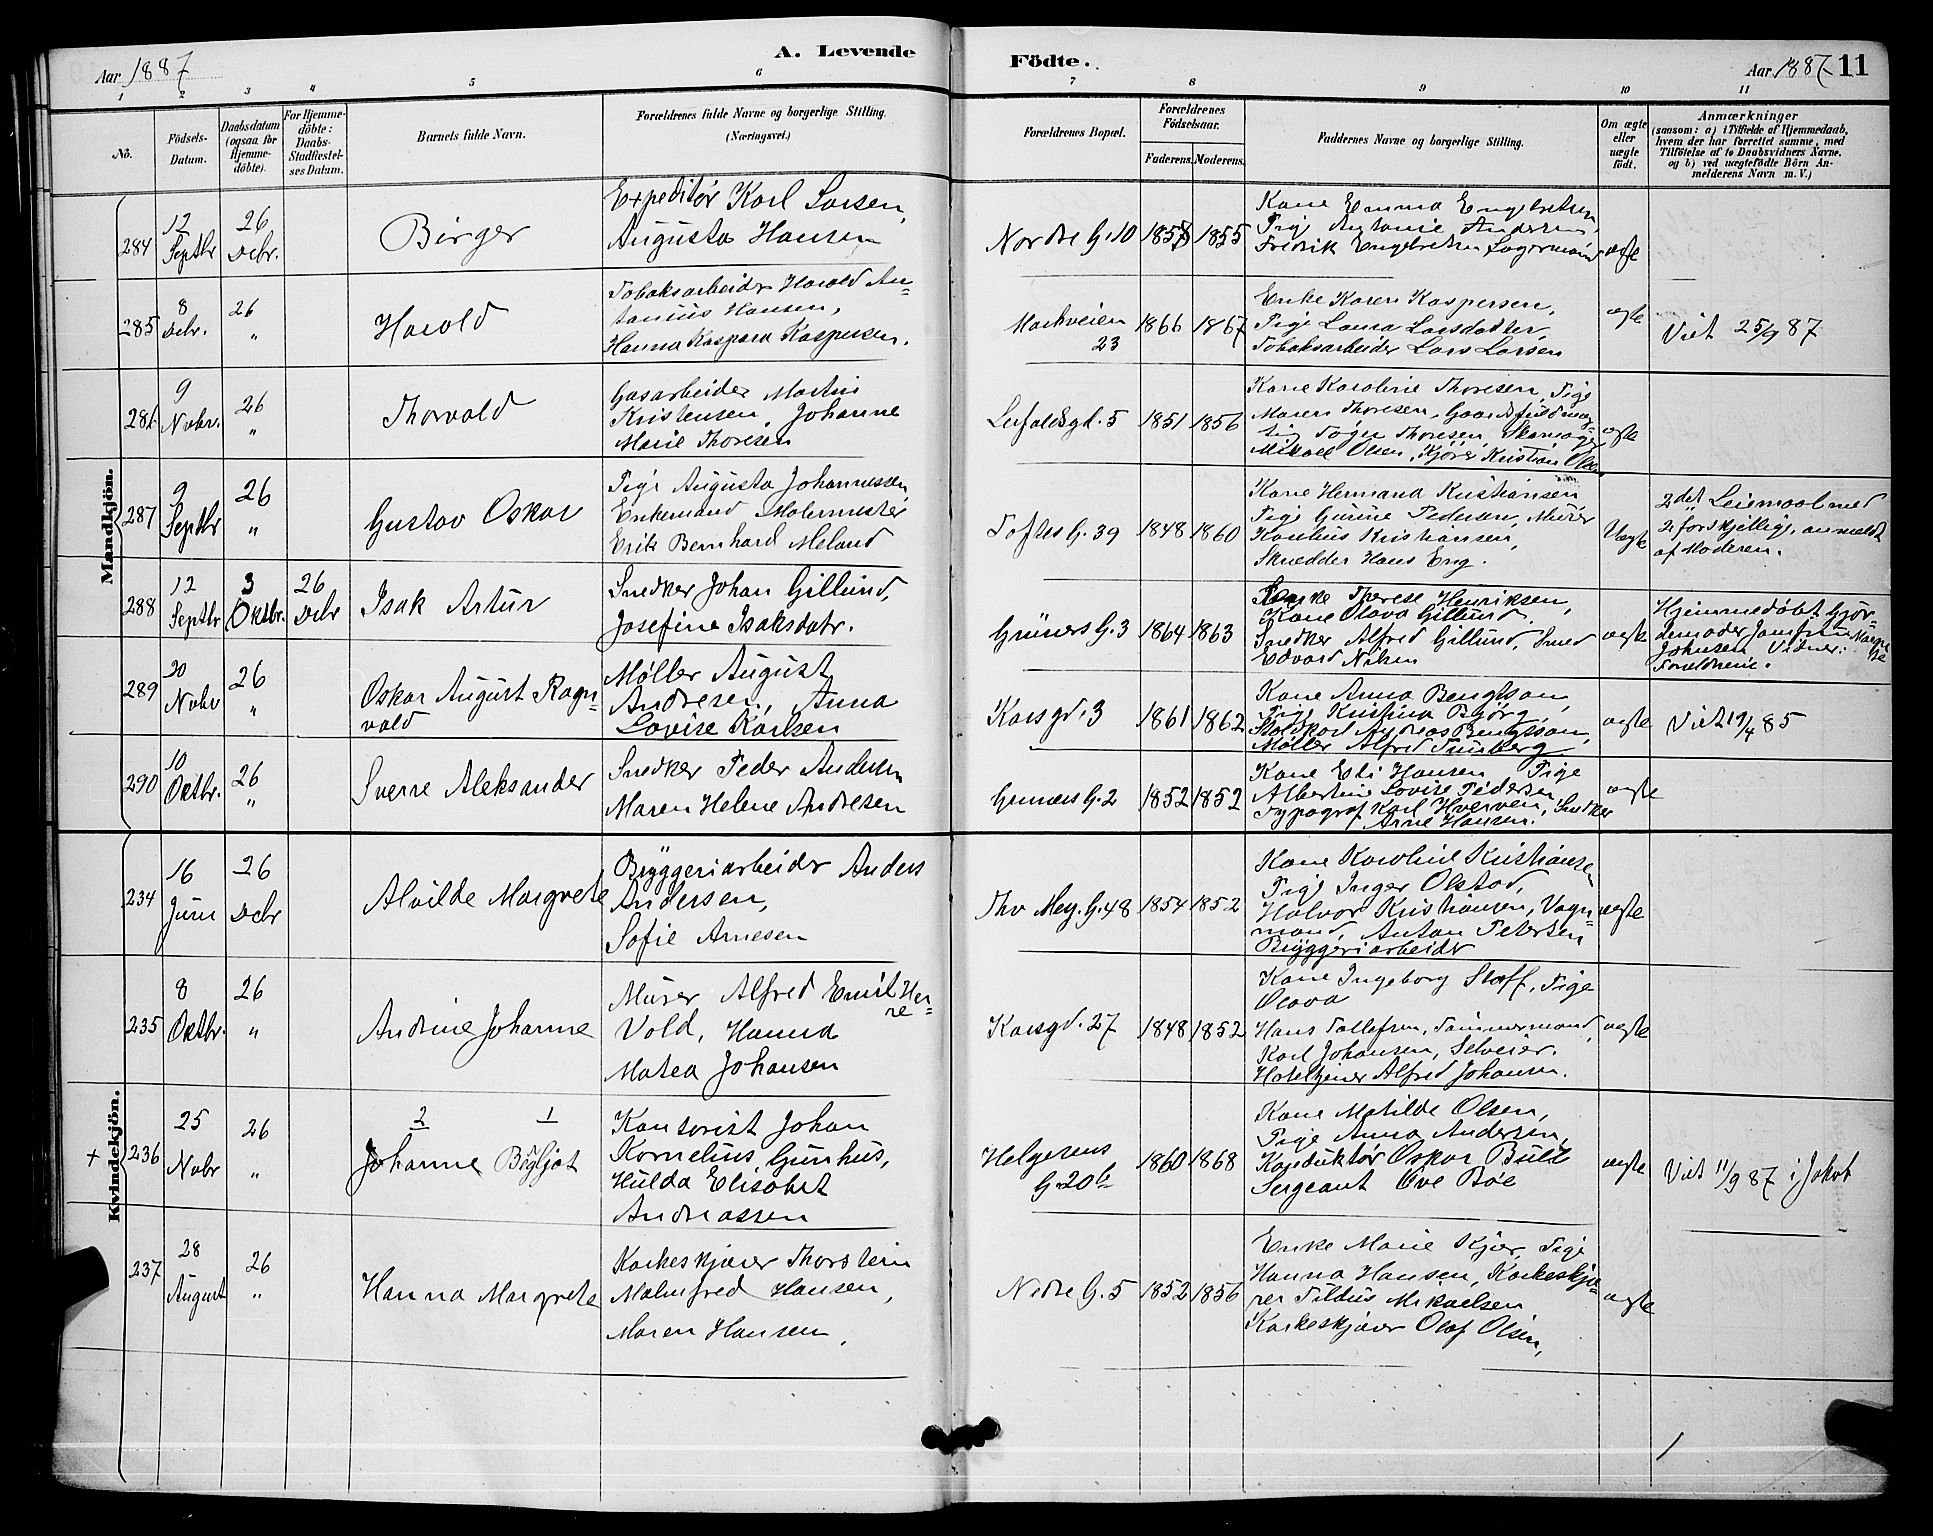 Aar 1887
A. Levende
Födte.
Aar 1887 11
1 2 3 4 5 6 7 8 9 10 11
No.
Födsels-
Datum.
Daabsdatum
(ogsaa for
Hjemme-
döbte).
For Hjemme-
döbte:
Daabs-
Stadfæstel-
ses Datum.
Barnets fulde Navn.
Forældrenes fulde Navne og borgerlige Stilling.
(Næringsvei.)
Forældrenes Bopæl.
Forældrenes
Födselsaar.
Faderens. Moderens.
Faddernes Navne og borgerlige Stilling.
Om ægte
eller
uægte
födt.
Anmærkninger
(saasom: a) i Tilfælde af Hjemmedaab,
hvem der har forrettet samme, med
Tilföielse af to Daabsvidners Navne,
og b) ved uægtefödte Börn An-
melderens Navn m. V.)
Mandkjön.
284
12
Septbr
26
Dcbr.
Birger
Expeditør Karl Larsen,
Augusta Hansen
Nordre G. 10
1858 1855
Kone Emma Engebretsen,
Pige Antonie Andersen,
Fredrik Engebretsen Lagermand
ægte
285
8
Dcbr.
26
"
Harold
Tobaksarbeider Harold An-
tonius Hansen,
Hanna Kaspara Kaspersen.
Markveien
23
1866 1867
Enke Karen Kaspersen,
Pige Laura Larsdatter,
Tobaksarbeider Lars Larsen
ægte
Viet 25/9 87
286
9
Nobr.
26
"
Thorvald
Gasarbeider Martin
Kristensen, Johanne
Marie Thoresen
Leufaldsgd. 5
1851 1856
Kone Karoline Thoresen, Pige
Maren Thoresen, Gaardsfuldmæg-
tig Thoresen, Skomager
Mikael Olsen, Kjører Kristian Olsen
ægte
287
9
Septbr
26
"
Gustav Oskar
Pige Augusta Johannessen,
Enkemand Malermester
Erik Bernhard Meland
Toftes G. 39
1848 1860
Kone Hermana Kristiansen
Pige Gurine Pedersen, Murer
Kristiansen,
Skrædder Hans Eng.
Uægte
2det Leiermaal med
2 forskjellige, anmeldt
af Moderen.
288
12
Septbr
3
Oktbr.
26
Dcbr
Isak Artur
Snedker Johan Gillund,
Josefine Isaksdatr.
Grüners G. 3
1864 1863
Enke Therese Henriksen,
Kone Olava Gillund,
Snedker Alfred Gillund, Smed
Edvard Nilsen
ægte
Hjemmedøbt Gjor-
demoder Jomfru
Johnsen Vidner:
Forældrene.
289
20
Nobr
26
"
Oskar August Ragn-
vald
Møller August
Andresen, Anna
Lovise Karlsen
Korsgd. 3
1861 1862
Kone Anna Bengtson,
Pige Kristina Bjørg,
Staldkarl Andreas Bengtsson,
Møller Alfred Tunberg
ægte
Viet 19/4 85
290
10
Oktbr.
26
"
Sverre Aleksander
Snedker Peder Andersen
Maren Helene Andresen
Grüners G. 2
1852 1852
Kone Eli Hansen Pige
Albertine Lovise Pedersen
Typograf Karl Hverven, Snedker
Arne Hansen.
ægte
Kvindekjön.
234
16
Juni
26
Dcbr
Alvilde Margrete
Bryggeriarbeider Anders
Andersen,
Sofie Arnesen
Thv Mey. G. 48
1854 1852
Kone Karoline Kristiansen
Pige Inger Olstad,
Halvor Kristiansen, Vogn-
mand, Anton Petersen
Bryggeriarbeider
ægte
235
8
Oktbr.
26
"
Andrine Johanne
Murer Alfred Emil Her-
re-
Vold, Hanna
Matea Johansen
Korsgd. 27
1848 1852
Kone Ingeborg Staff, Pige
Olava
Hans Tollefsen, Tømmermand,
Karl Johansen, Selveier.
Hoteltjener Alfred Johansen.
ægte
+ 236
25
Nobr
26
"
2 1
Johanne Bergljot
Kontorist Johan
Kornelius Gunhus,
Hulda Elisabet
Andreassen
Helgesens
G. 20b
1860 1868
Kone Matilde Olsen,
Pige Anna Andersen,
Konduktør Oskar Bull
Sergeant Ove Bøe
ægte
Viet 11/9 87 i Jakob
237
28
August
26
"
Hanna Margrete
Korkeskjærer Thorstein
Malmfred Hansen,
Maren Hansen,
Nedre G. 5
1852 1856
Enke Marie Kjær, Pige
Hanna Hansen, Korkeskjæ-
rer Mikaelsen
Korkeskjærer Olaf Olsen,
ægte